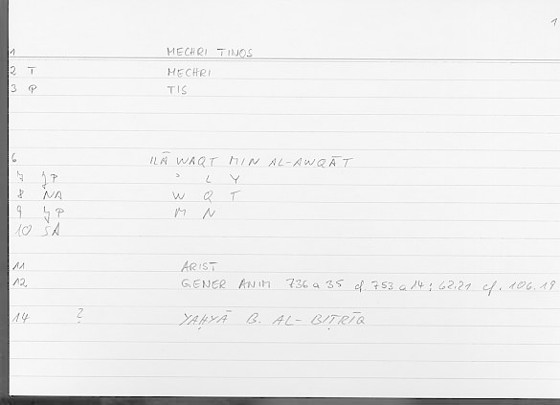 1
1 MECHRI TINOS
2 T MECHRI
3 P TIS
6 ILĀ WAQT MIN AL-AWQĀT
7 ȷP ʾ L Y
8 NA W Q T
9 ȷP M N
10 SA
11 ARIST
12 GENER ANIM 736 a 35 cf. 753 a 14; 62.21 cf. 106.19
14 ? YAḤYĀ B. AL-BIṬRĪQ